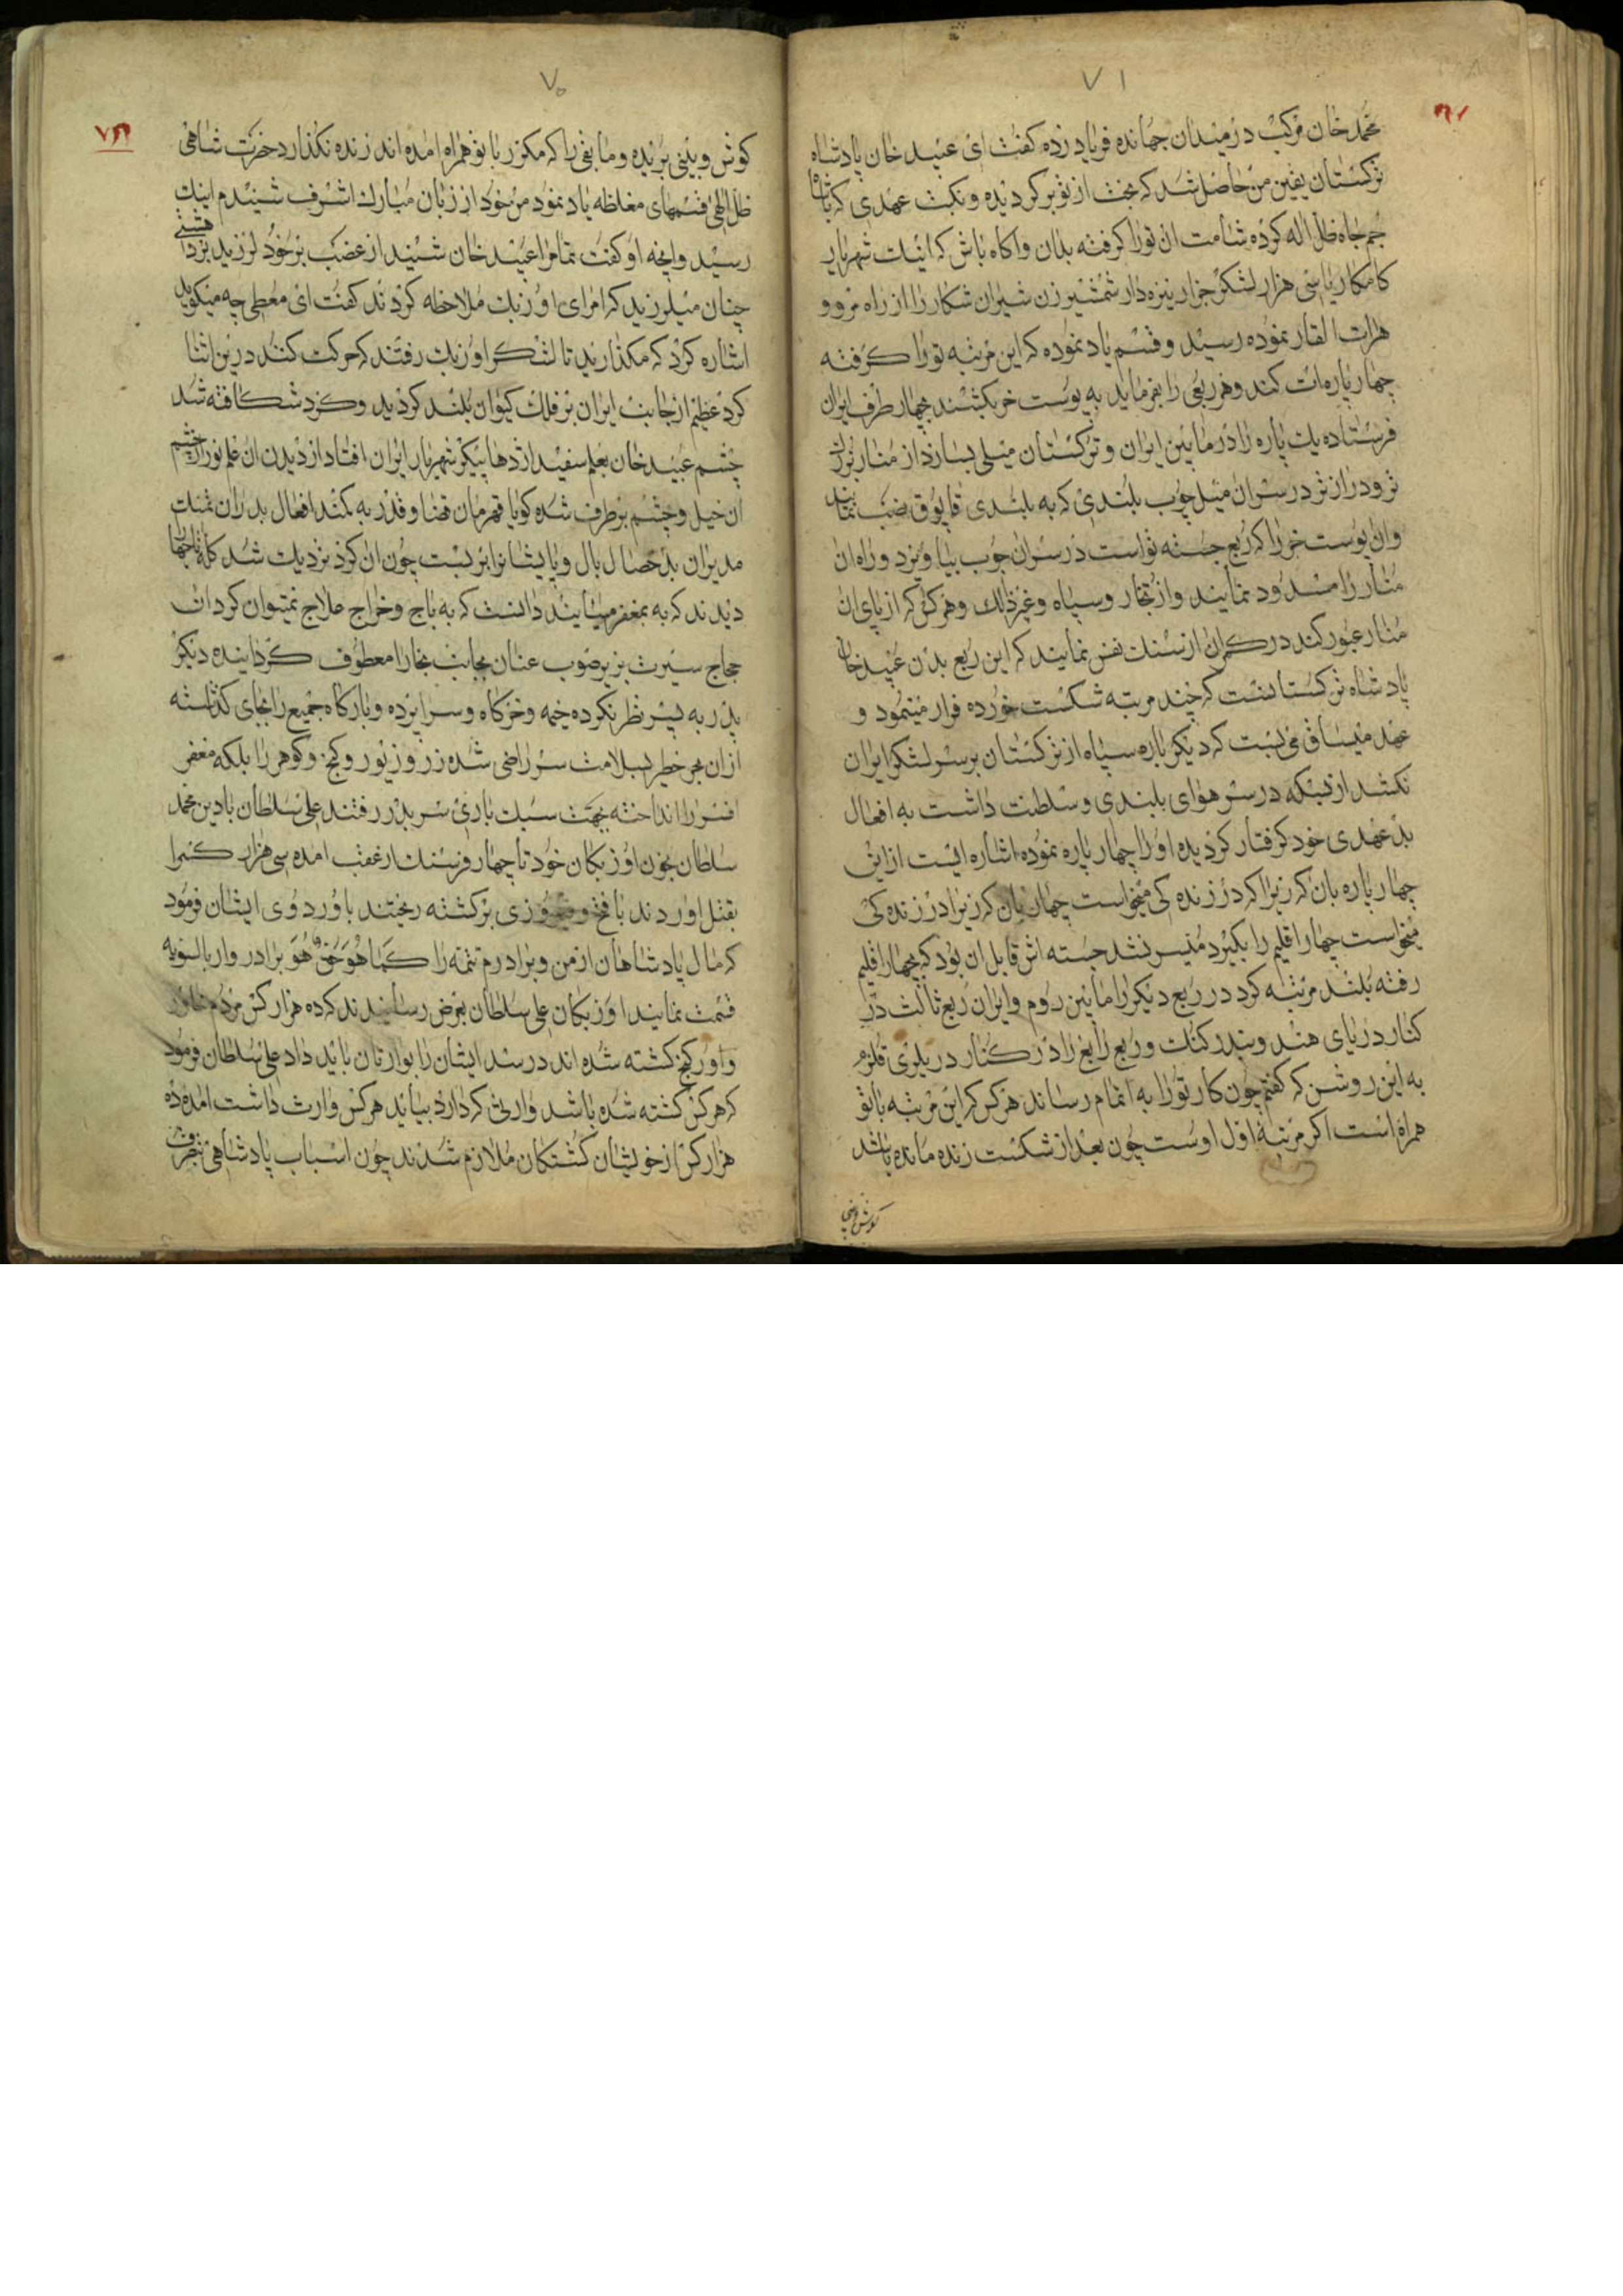 ۷۱
محمد خان مرکب در میدان جهانده فریاد زده کفت ای عبید خان پادشاه
ترکستان یقین من حاصل شد که بخت از تو بر کردیده و نکث عهدی که باشاه
جم جاه ظل اله کرده شامت ان تو را کرفته بدان واکاه باش که اینک شهریار
کامکار باسی هزار لشکر جرار نیزه دار شمشیر زن شیران شکار را از راه مرو و
هرات الغار نموده رسید و قسم یاد نموده که این مرتبه تو را کرفته
چهار پاره ات کند و هر ربعی را بفرماید به پوست خر بکشند بچهار طرف ایران
فرستاده یک پاره را در مابین ایران و ترکستان میلی بسازد از منار بزرک
تر و دراز تر در سران میل چوب بلندی که به بلندی قاپوق نصب نمایند
وان پوست خر را که ربع جسته تواست در سران چوب بیاویزد و راه ان
منار را مسدود نمایند و از تجار و سپاه و غیر ذالک و هر کس که از پای ان
منار عبور کند در کران از سنک نفس نمایند که این ربع بدن عبید خان
پادشاه ترکستانست که چند مرتبه شکست خورده فرار مینمود و
عهد میساق می بست که دیکر باره سپاه از ترکستان بر سر لشکر ایران
نکشد از بسکه در سر هوای بلندی و سلطنت داشت به افعال
بد عهدی خود کرفتار کردیده او را چهار پاره نموده اشاره ایست از این
چهار پاره بان که زیرا که در زنده کی میخواست چهار بان که زیرا در زنده کی
میخواست چهار اقلیم را بکیرد میسر نشد جسته اش قابل ان بود که بچهار اقلیم
رفته بلند مرتبه کرد در ربع دیکر را مابین روم و ایران ربع ثالث در
کنار دریای هند و بندر کنک و ربع رابع را در کنار دریلری قلزم
به این روشن که کفتم چون کار تو را به اتمام رساند هر کس که این مرتبه باتو
همراه است اکر مرتبه اول اوست چون بعد از شکست زنده مانده باشد
کوش و بینی
۷۰
کوش و بینی بریده و مابقی را که مکرر با تو همراه امده اند زنده نکذارد حضرت شاهی
ظل الهی قسمهای مغلظه یاد نمود من خود از زبان مبارک اشرف شنیدم اینک
رسید وانچه او کفت تمام را عبید خان شنید از غضب بر خود لرزید
چنان میلرزید که امرای اوزبک ملاحظه کردند کفت ای معطی چه میکوید
اشاره کرد که مکذارید تا لشکر اوزبک رفتند که حرکت کنند در این اثنا
کرد عظیم از جانب ایران بر فلک کیوان بلند کردید و کرد شکافته شد
چشم عبید خان بعلم سفید اژدها پیکر شهریار ایران افتاد از دیدن ان علم نور از چشم
ان خیل و چشم برطرف شده کویا قهرمان قضا و قدر به کمند افعال بد ران نمک
مدبران بد خصال بال و پا یشانرا بر بست چون ان کرد نزدیک شد
دیدند که به بمغفر میایند دانست که به باج و خراج علاج نمیتوان کرد ان
حجاج سیرت بزیر صوب عنان بجانب بخارا معطوف کردانیده دیکر
پدر به پسر نظر نکرده خیمه و خرکاه و سراپرده و بارکاه جمیع را بجای کذاشته
ازان بحر خطیر بسلامت سر راضی شده زر و زیور و کنج و کوهر را بلکه مغفر
افسر را انداخته بجهت سبک باری سر بدر رفتند علی سلطان بادین محمد
سلطان بخون اوزبکان خود تا چهار فرسنک از عقب امده سی هزار کس را
بقتل اوردند با فتح و فیروزی برکشته ریختند باوردوی ایشان فرمود
که مال پادشاهان از من و برادرم تتمه را کما هو حق هو برادر وار بالسویه
قسمت نمایند اوزبکان علی سلطان بعرض رسانیدند که ده هزار کس مردم
و اورکنج کشته شده اند در سد ایشان را بوارثان باید داد علی سلطان فرمود
که هر کس کشته شده باشد وارثی که دارد بیاید هر کس وارث داشت امده ده
هزار کس از خویشان کشتکان ملازم شدند چون اسباب پادشاهی بتصرف